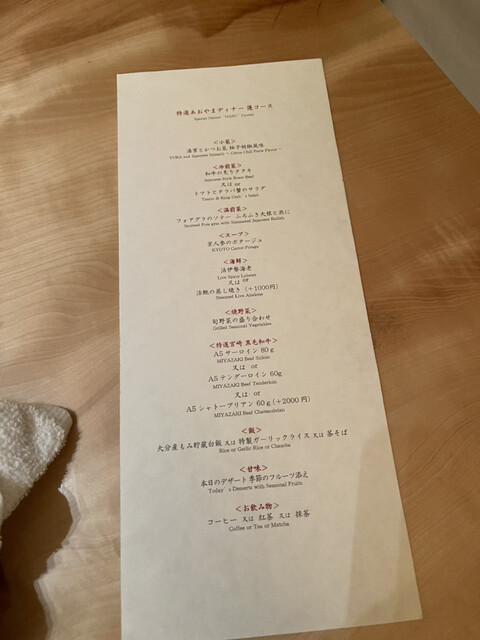 特選あおやまディナー 蓮コース
Special Dinner
Course
＜小菜＞
湯葉とかつお菜 柚子胡椒風味
YUBA and Japanese Spinach ～ Citrus Chili Paste Flavor ～
＜冷前菜＞
和牛の炙りタタキ
Japanese Style Roast Beef
又は or
トマトとタラバ蟹のサラダ
Tomato & King Crab's Salad
＜温前菜＞
フォアグラのソテー ふろふき大根と共に
Sauteed Foie gras with Simmered Japanese Radish
＜スープ＞
京人参のポタージュ
KYOTO Carrot Potage
＜海鮮＞
活伊勢海老
Live Spiny Lobster
又は or
活鮑の蒸し焼き (＋1000円)
Steamed Live Abalone
＜焼野菜＞
旬野菜の盛り合わせ
Grilled Seasonal Vegetables
＜特選宮崎 黒毛和牛＞
A5 サーロイン 80g
MIYAZAKI Beef Sirloin
又は or
A5 テンダーロイン 60g
MIYAZAKI Beef Tenderloin
又は or
A5 シャトーブリアン 60g (＋2000円)
MIYAZAKI Beef Chateaubrian
＜飯＞
大分産もみ貯蔵台飯 又は 特製ガーリックライス 又は 茶そば
Rice or Garlic Rice or Chasoba
＜甘味＞
本日のデザート 季節のフルーツ添え
Today's Desserts with Seasonal Fruits
＜お飲み物＞
コーヒー 又は 紅茶 又は 抹茶
Coffee or Tea or Matcha